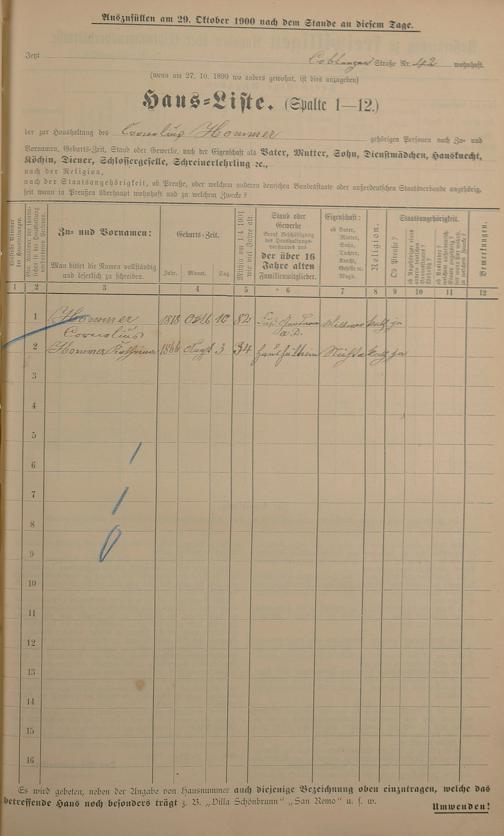 Auszufüllen am 29. Oktober 1900 nach dem Stande an diesem Tage.
Jetzt Coblenzer Straße Nr. 42 wohnhaft.
(wenn am 27. 10. 1899 wo anders gewohnt, ist dies anzugeben)
Haus-Liste. (Spalte 1—12.)
der zur Haushaltung des Cornelius Hommer gehörigen Personen nach Zu- und
Vornamen, Geburts-Zeit, Stand oder Gewerbe, nach der Eigenschaft als Vater, Mutter, Sohn, Dienstmädchen, Hausknecht,
Köchin, Diener, Schlossergeselle, Schreinerlehrling ꝛc.,
nach der Religion,
nach der Staatsangehörigkeit, ob Preuße, oder welchem anderen deutschen Bundesstaate oder außerdeutschen Staatsverbande angehörig,
seit wann in Preußen überhaupt wohnhaft und zu welchem Zwecke?
Zu- und Vornamen:
Man bittet die Namen vollständig
und leserlich zu schreiben.
Geburts-Zeit.
Jahr. Monat. Tag.
Stand oder
Gewerbe
der über 16
Jahre alten
Familienmitglieder.
Eigenschaft:
ob Vater,
Mutter,
Sohn,
Tochter,
Knecht,
Geselle u.
Magd.
Religion.
Staatsangehörigkeit.
Ob Preuße?
Bemerkungen.
1 2 3 4 5 6 7 8 9 10 11 12
1 Hommer 1818 10 82 kath ja
Cornelius
2 Hommer 1866 3 34 kath ja
3
4
5
6
7
8
9
10
11
12
13
14
15
16
Es wird gebeten, neben der Angabe von Hausnummer auch diejenige Bezeichnung oben einzutragen, welche das
betreffende Haus noch besonders trägt z. B. „Villa Schönbrunn“ „San Remo“ u. s. w.
Umwenden!